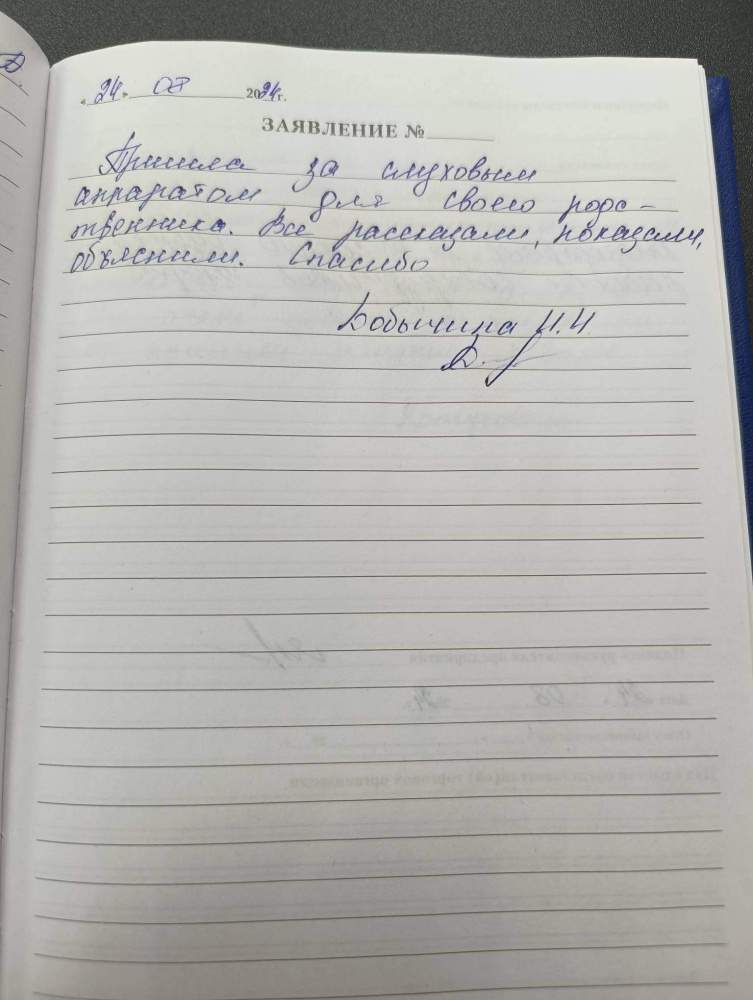 « 24 » 08 2024г.
ЗАЯВЛЕНИЕ №
Пришла за слуховым
аппаратом для своего род-
ственника. Все рассказали, показали,
объяснили. Спасибо